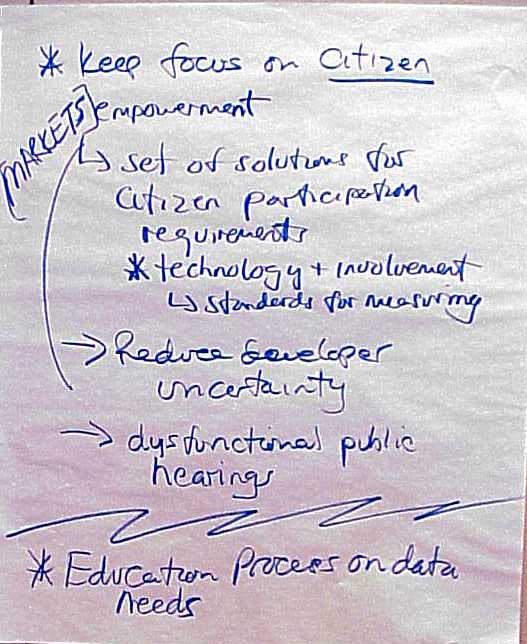 * Keep focus on Citizen
[MARKETS] empowerment
↳ set of solutions for
citizen participation
requirements
* technology + involvement
↳ standards for measuring
→ Reduce developer
uncertainty
→ dysfunctional public
hearings
* Education Process on data
needs